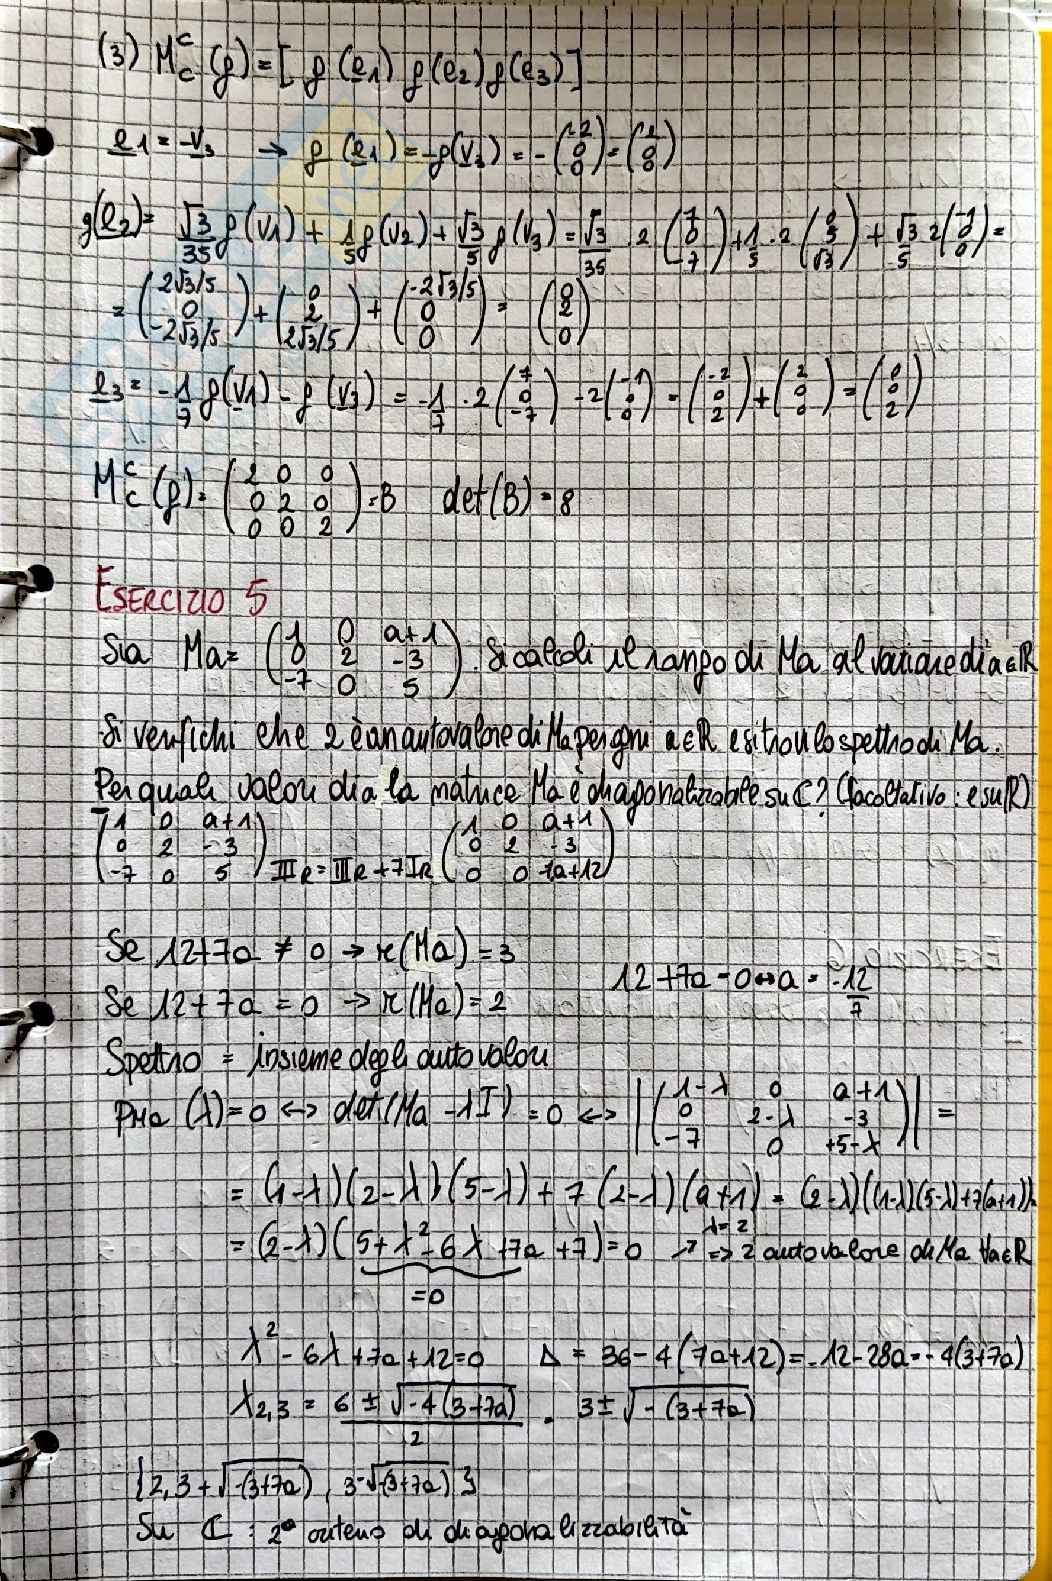 (3) M_C^C (g) = [ g(e1) g(e2) g(e3) ]
e1 = -v3 → g(e1) = -g(v3) = -(-2 0 0) = (2 0 0)
g(e2) = √3/35 g(v1) + 1/5 g(v2) + √3/5 g(v3) = √3/35 · 2 (7 0 -7) + 1/5 · 2 (0 5 √3) + √3/5 2 (-1 0 0) =
= (2√3/5 0 -2√3/5) + (0 2 2√3/5) + (-2√3/5 0 0) = (0 2 0)
e3 = -1/7 g(v1) - g(v3) = -1/7 · 2 (7 0 -7) - 2 (-1 0 0) = (-2 0 2) + (2 0 0) = (0 0 2)
M_C^C (g) = (2 0 0
0 2 0
0 0 2) = B det(B) = 8
ESERCIZIO 5
Sia Ma = (1 0 a+1
0 2 -3
-7 0 5). Si calcoli il rango di Ma al variare di a∈R
Si verifichi che 2 è un autovalore di Ma per ogni a∈R e si trovi lo spettro di Ma.
Per quali valori di a la matrice Ma è diagonalizzabile su C? (facoltativo: e su R)
(1 0 a+1
0 2 -3
-7 0 5) IIIR = IIIR + 7IR (1 0 a+1
0 2 -3
0 0 7a+12)
Se 12+7a ≠ 0 → r(Ma) = 3
12+7a = 0 ↔ a = -12/7
Se 12+7a = 0 → r(Ma) = 2
Spettro = insieme degli autovalori
PMa (λ) = 0 ↔ det(Ma - λI) = 0 ↔ |(1-λ 0 a+1
0 2-λ -3
-7 0 +5-λ)| =
= (1-λ)(2-λ)(5-λ) + 7(2-λ)(a+1) = (2-λ)((1-λ)(5-λ)+7(a+1)) =
= (2-λ)(5+λ²-6λ+7a+7) = 0 ↗ λ=2 => 2 autovalore di Ma ∀a∈R
=0
λ² - 6λ + 7a + 12 = 0 Δ = 36 - 4(7a+12) = -12-28a = -4(3+7a)
λ2,3 = 6 ± √-4(3+7a) / 2 = 3 ± √-(3+7a)
{2, 3+√-(3+7a), 3-√-(3+7a)}
Su C : 2° criterio di diagonalizzabilità